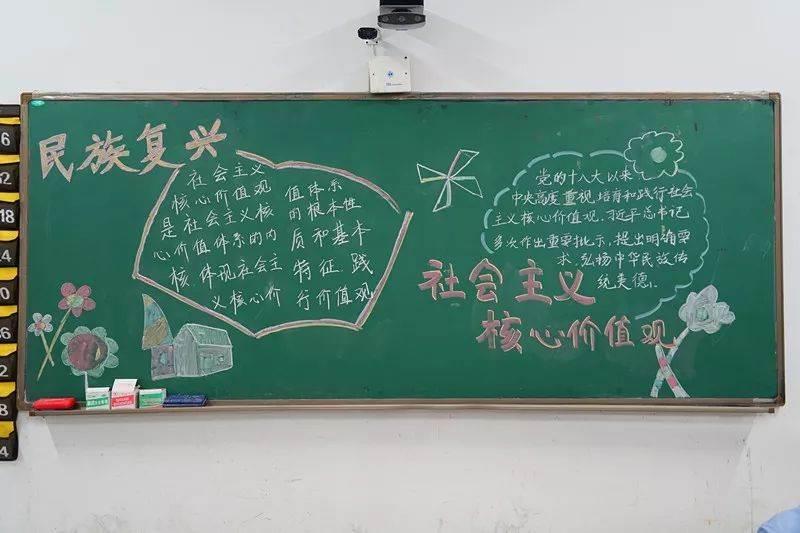 民族复兴
社会主义
核心价值观
是社会主义核
心价值体系的内
核体现社会主
义核心价
值体系
的根本性
质和基本
特征.践
行价值观
党的十八大以来,
中央高度重视.培育和践行社会
主义核心价值观.习近平总书记
多次作出重要批示,提出明确要
求.弘扬中华民族传
统美德.
社会主义
核心价值观
18